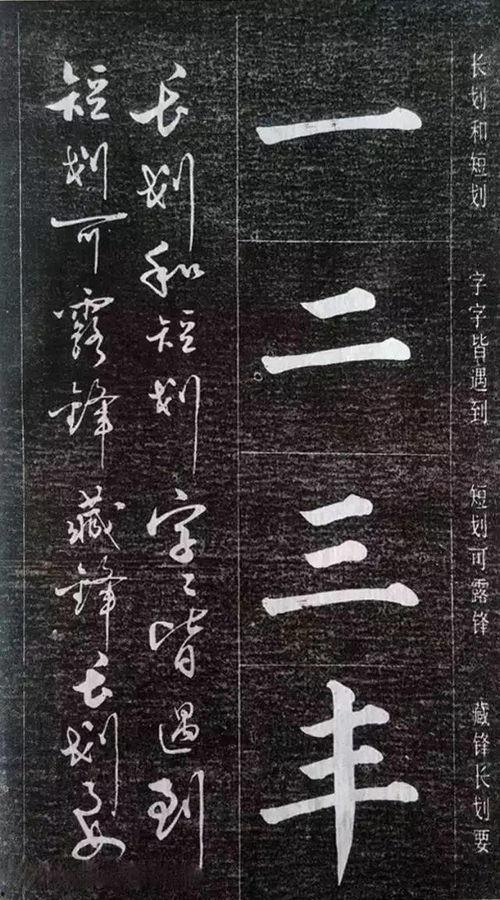 长划和短划 字字皆遇到 短划可露锋 藏锋长划要
一
二
三
丰
长划和短划字〻皆遇到
短划可露锋藏锋长划要